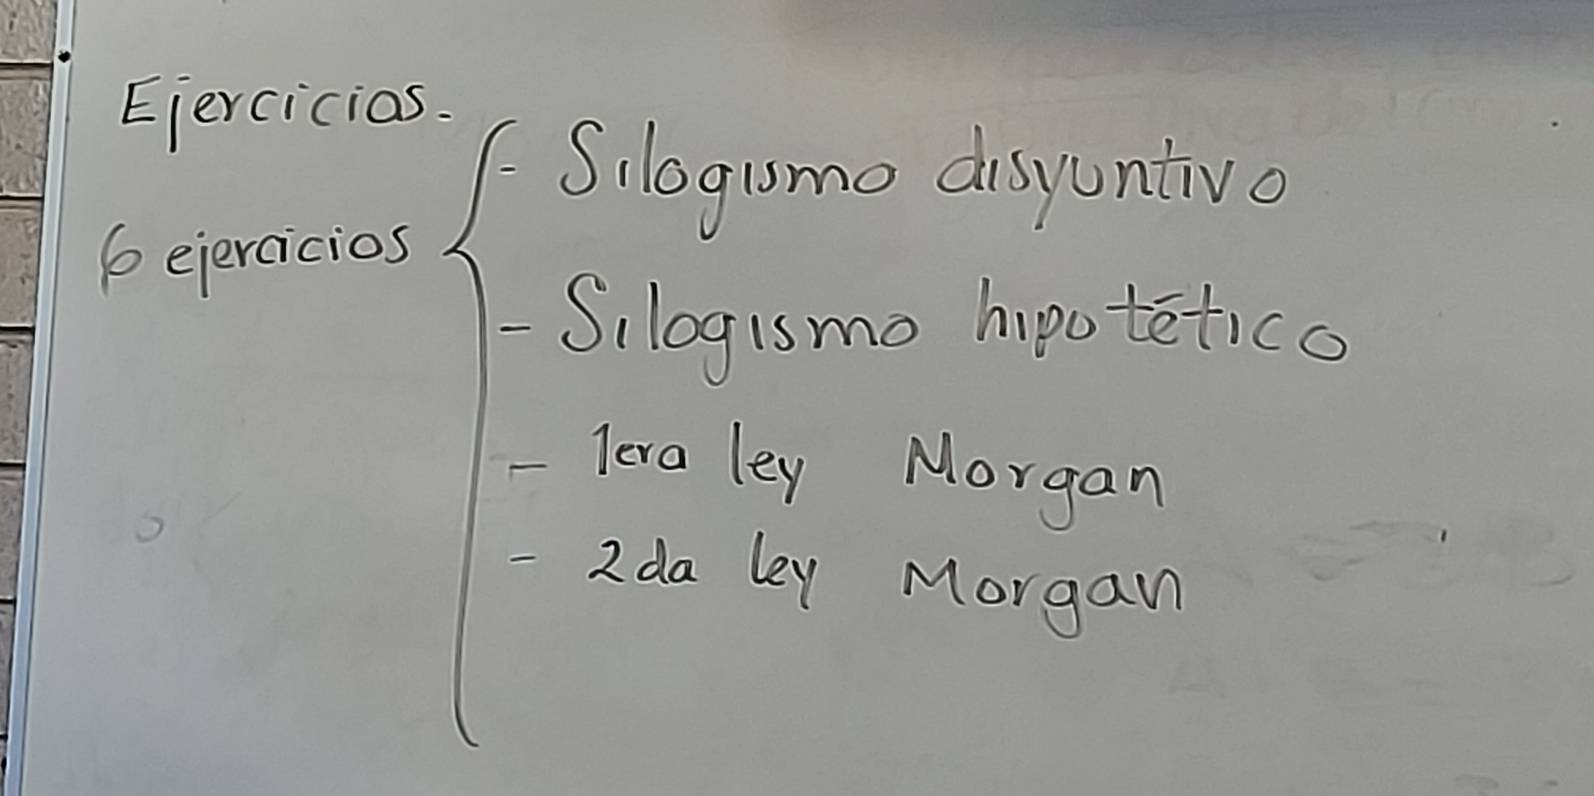 Ejercicios.-
6 ejercicios
- Silogismo disyuntivo
- Silogismo hipotético
- 1era ley Morgan
- 2da ley Morgan